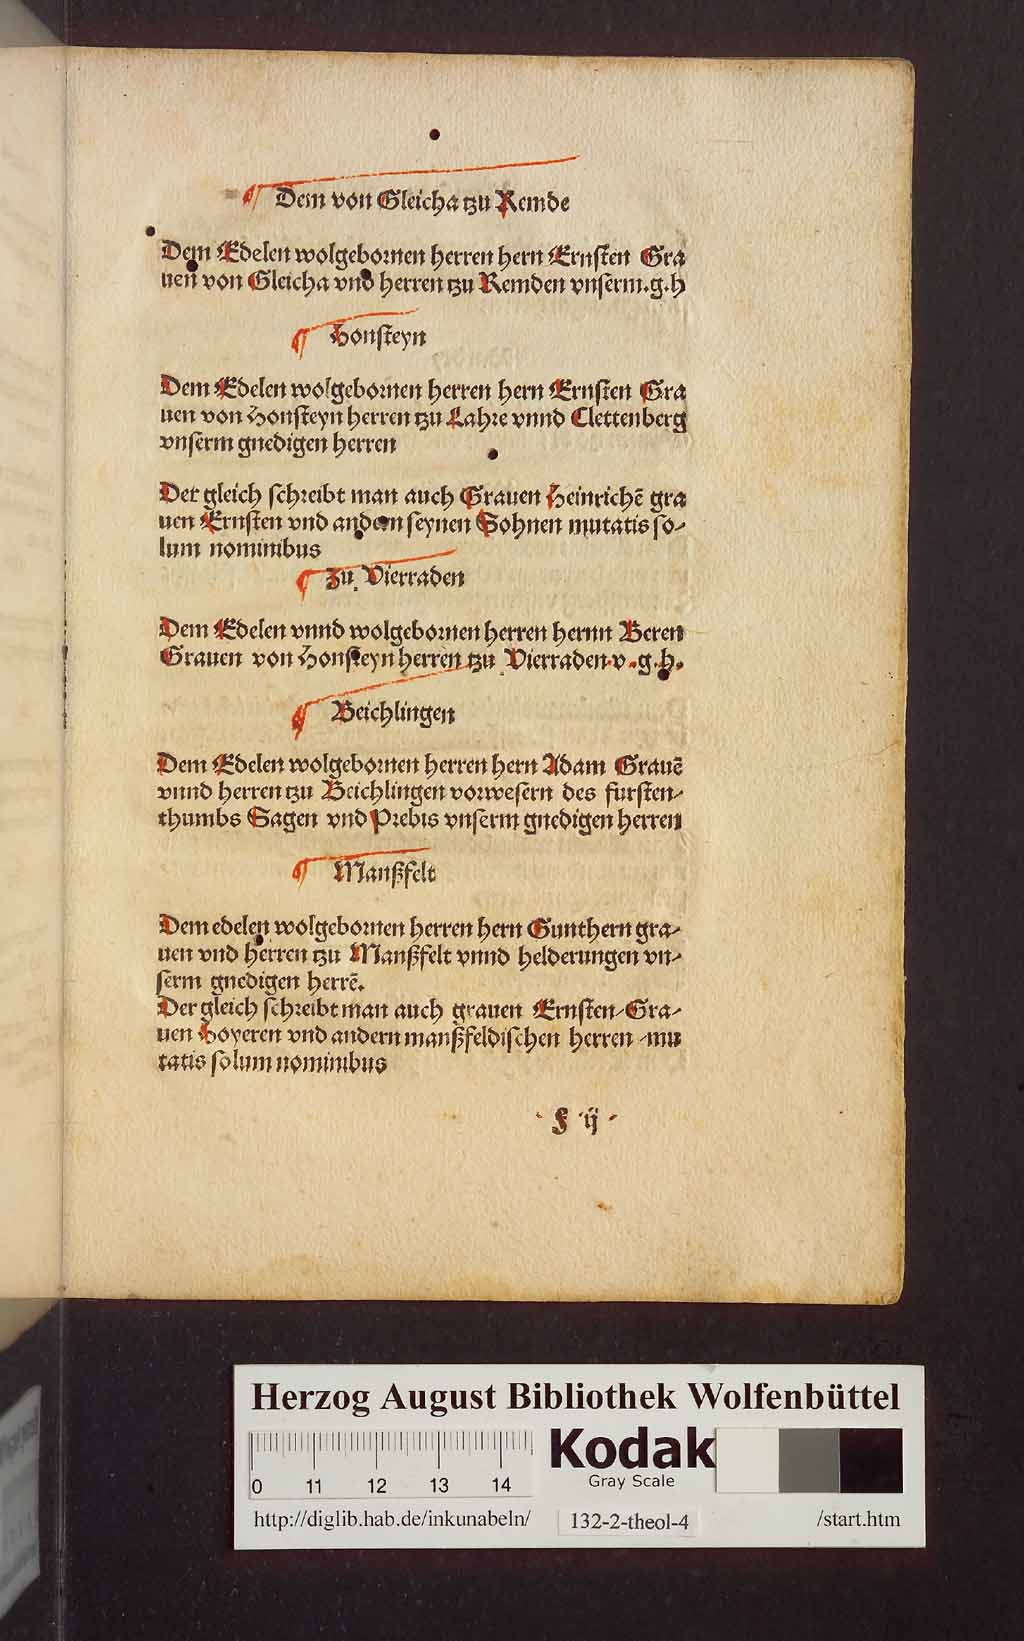 ¶ Dem von Gleicha tzu Remde
Dem Edelen wolgebornen herren hern Ernsten Gra
uen von Gleicha vnd herren tzu Remden vnserm.g.h
¶ Honsteyn
Dem Edelen wolgebornen herren hern Ernsten Gra
uen von Honsteyn herren tzu Lahre vnnd Clettenberg
vnserm gnedigen herren
Der gleich schreibt man auch Grauen Heinrichē gra
uen Ernsten vnd andern seynen Sohnen mutatis so-
lum nominibus
¶ Zu Vierraden
Dem Edelen vnnd wolgebornen herren hernn Beren
Grauen von Honsteyn herren tzu Vierraden.v.g.h.
¶ Beichlingen
Dem Edelen wolgebornen herren hern Adam Grauē
vnnd herren tzu Beichlingen vorwesern des fursten-
thumbs Sagen vnd Prebis vnserm gnedigen herren
¶ Manßfelt
Dem edelen wolgebornen herren hern Gunthern gra-
uen vnd herren tzu Manßfelt vnnd helderungen vn-
serm gnedigen herrē.
Der gleich schreibt man auch grauen Ernsten/Gra-
uen Hoyeren vnd andern manßfeldischen herren/mu
tatis solum nominibus
f ij
Herzog August Bibliothek Wolfenbüttel
Kodak
Gray Scale
0 11 12 13 14
http://diglib.hab.de/inkunabeln/ 132-2-theol-4 /start.htm